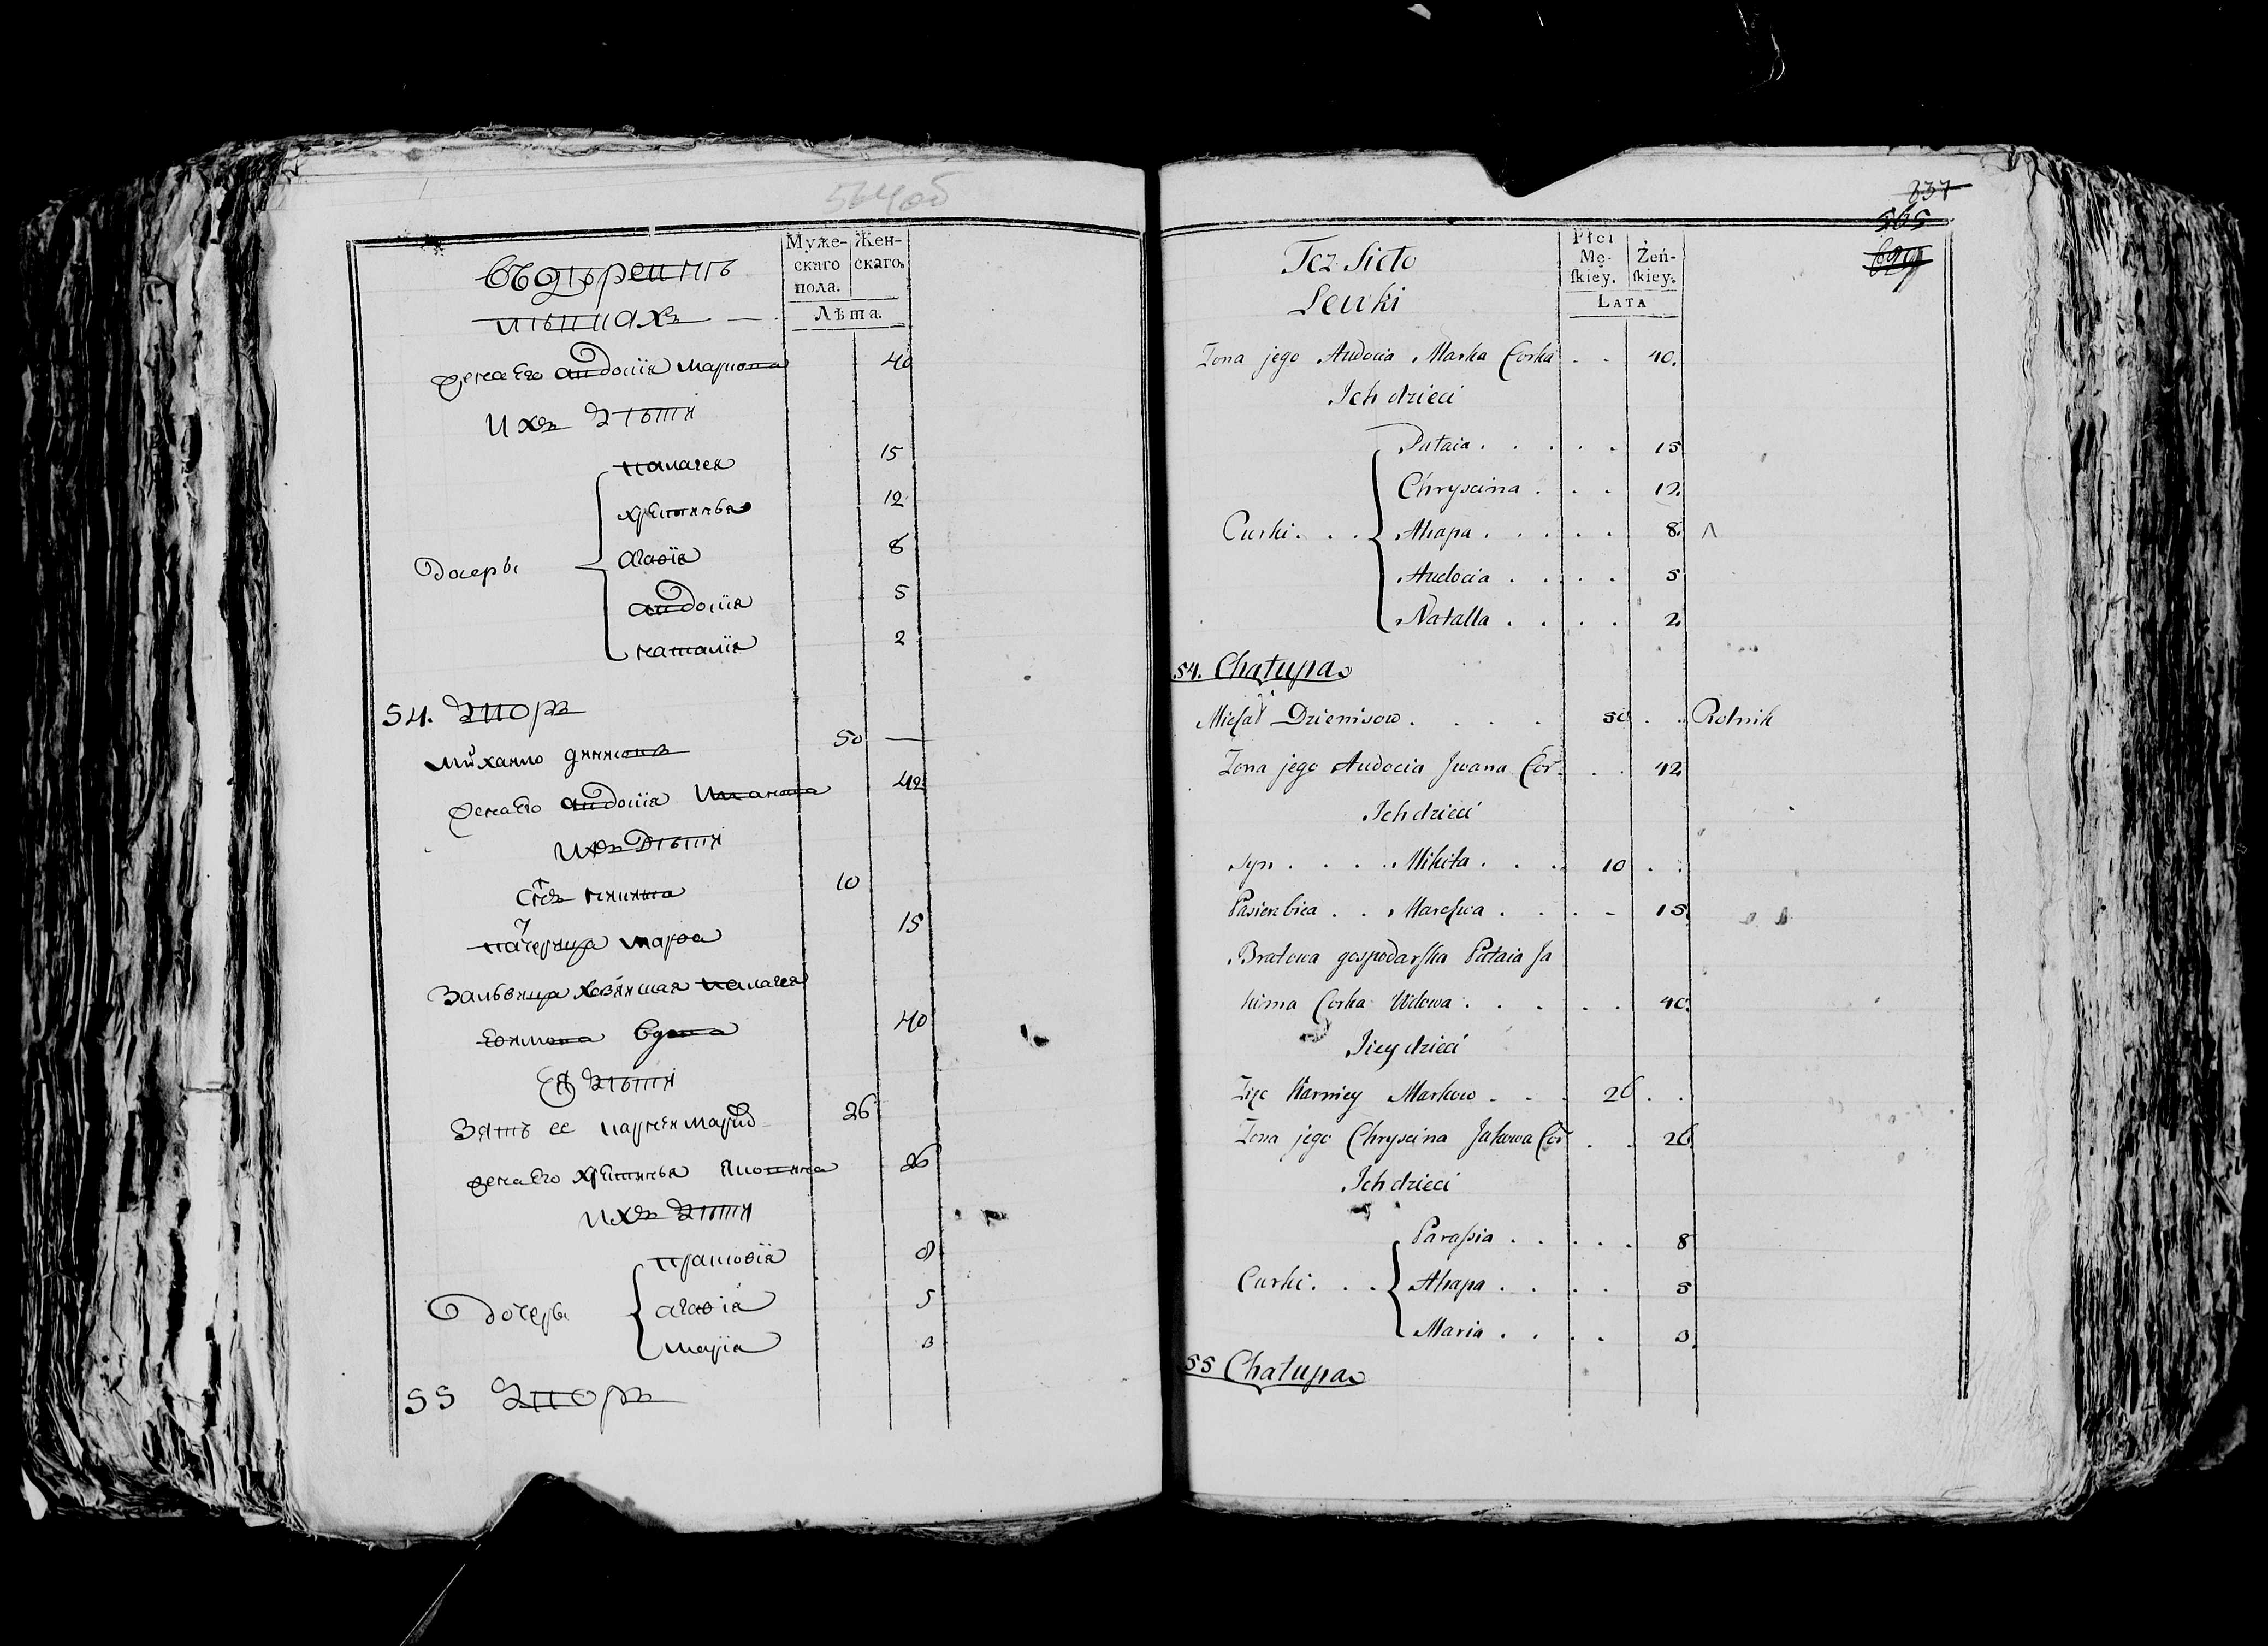 564об
Муже-
скаго
пола.
Жен-
скаго.
Лѣта.
въ деревнѣ
левкахъ
жена Его авдотiя маркова 40
ихъ дѣти
палагея 15
хрестинья 12
дочерь агафiя 8
авдотiя 5
наталiя 2
54. дворъ
михайло дянисовъ 50 —
жена Его авдотiя иванова 42
ихъ дѣти
снъ никита 10
падчерица марфа 15
хозяйская палагея
вдова 40
Ея дѣти
Зять ее карней марков 26
жена Его хрестинья яковлива 26
ихъ дѣти
прасковiя 8
дочерь агафiя 5
марiя 3
55 дворъ
237
565
Też Sieło
Lewki
Płci
Mę-
ſkiey.
Żeń-
ſkiey.
LATA
Zona jego Audocia Marka Corka . . 40.
Ich dzieci
Pałaia . . . . . 15
Chryscina . . . 12
Curki . . . Ahapa . . . . . 8
Audocia . . . . 5
Natalla . . . . 2
54. Chałupa
Michał Dzienisow . . . . 50 . . Rolnik
Zona jego Audocia Jwana Cor. . . 42
Ich dzieci
Syn . . . . Mikita . . . 10 . .
Pasierzbica . . Marchwa . . . - 15
Bratowa gospodarſka Pałaia Ja
kima Corka Wdowa . . . . . 40.
Jiey dzieci
Zięć Karniey Markow - . - 26 . .
Zona jego Chryscina Jakowa Cor . . 26
Ich dzieci
Paraſsia . . . . . 8
Curki . . . Ahapa . . . . . 5
Maria . . . . 3
55 Chałupa